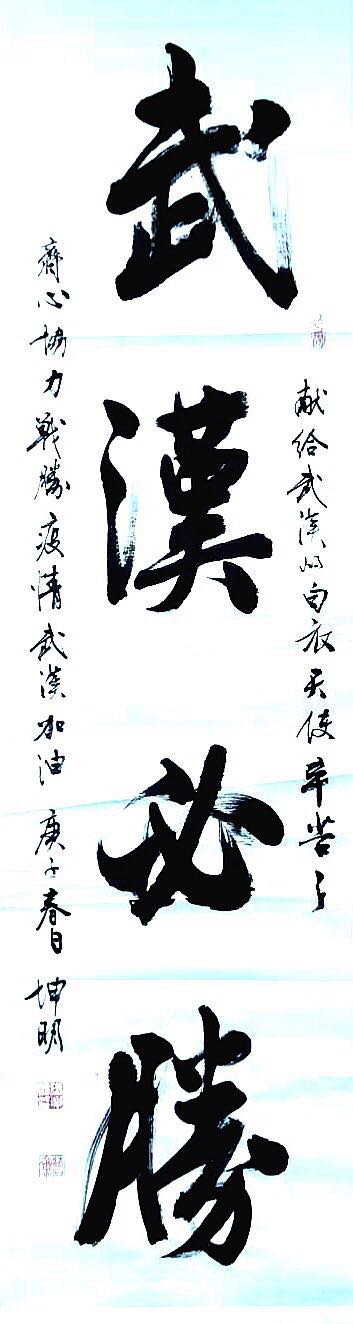 献给武漢的白衣天使辛苦了
武漢必勝
齊心協力戰勝疫情武漢加油 庚子春日 坤明